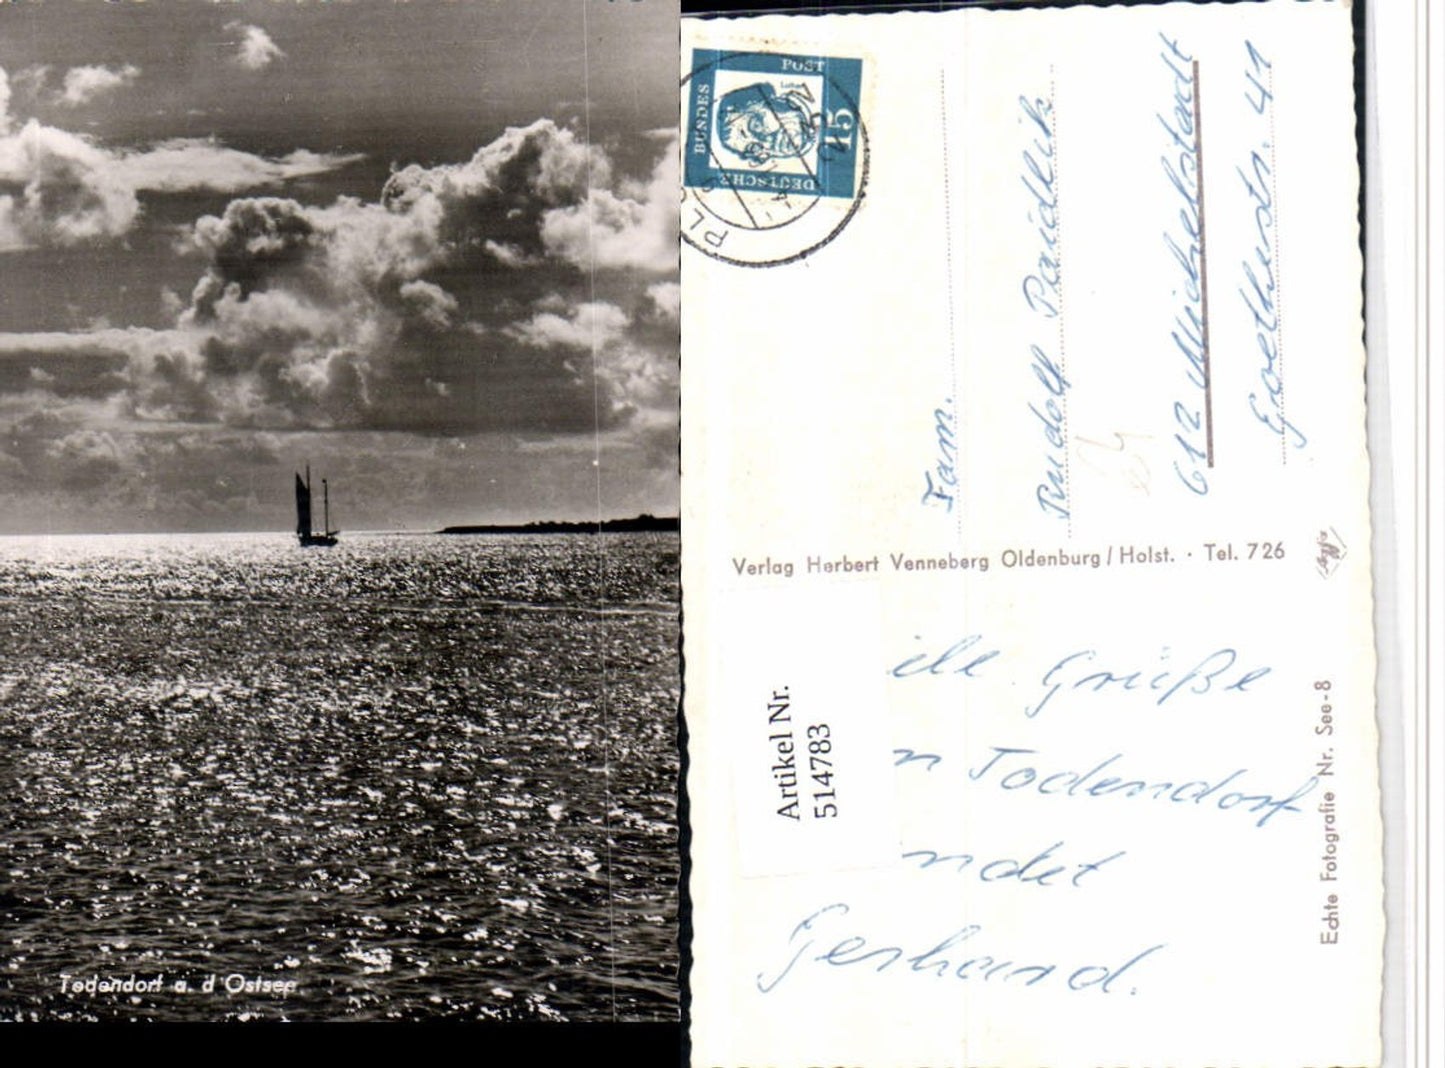 Todendorf a. d Ostsee
POST
BUNDES
DEUTSCHE
15
Fam.
Rudolf Paidlik
612 Michelstadt
Goethestr. 41
Verlag Herbert Venneberg Oldenburg / Holst. · Tel. 726
Agfa
Artikel Nr.
514783
ile Grüße
n Todendorf
ndet
Gerhard.
Echte Fotografie Nr. See-8